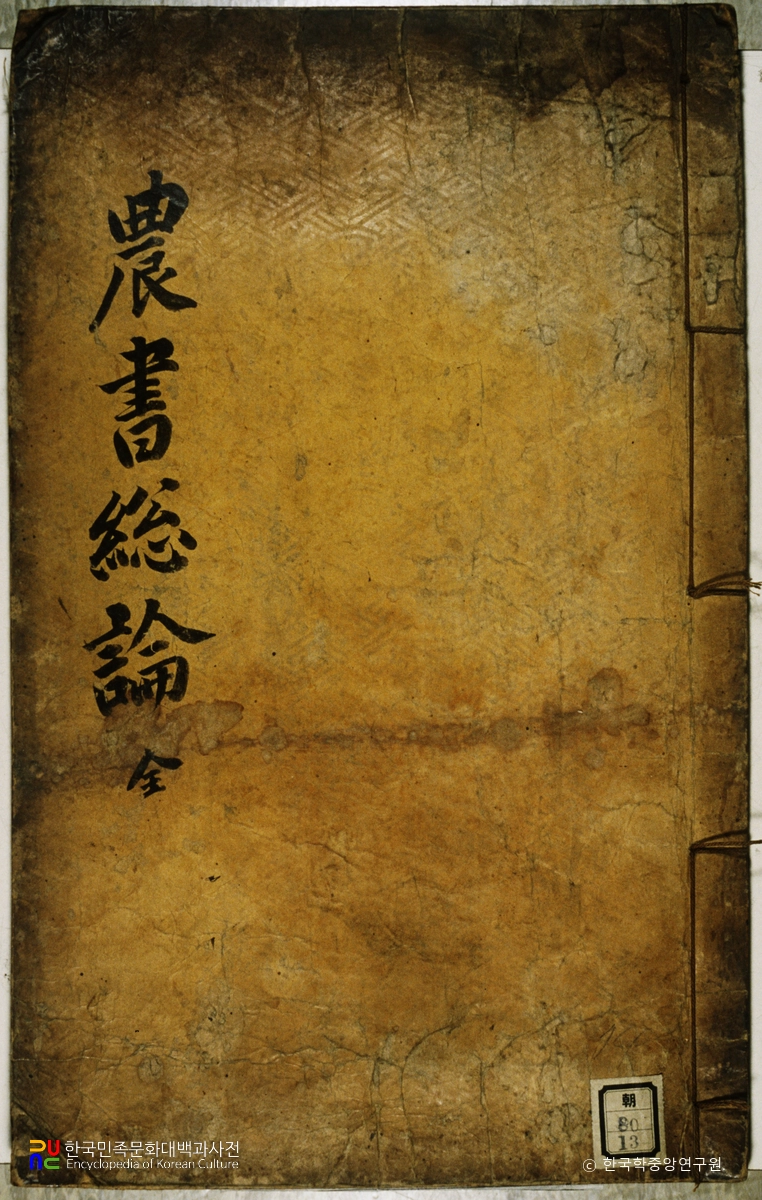 農書総論 全
朝
80
13
한국민족문화대백과사전
Encyclopedia of Korean Culture
© 한국학중앙연구원